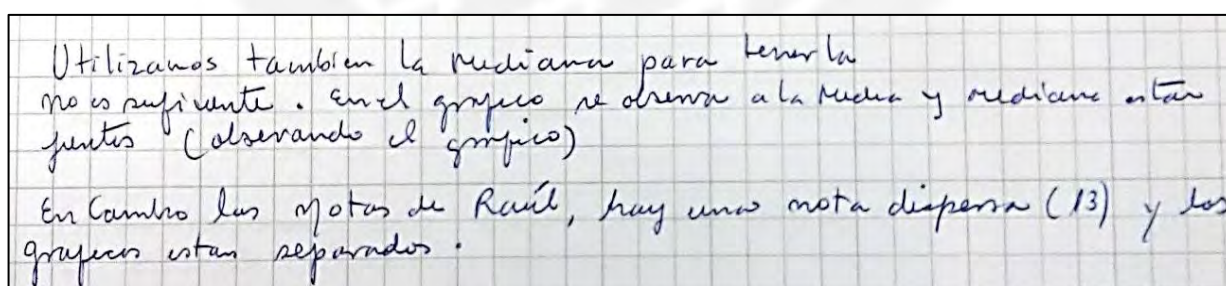 Utilizamos tambien la mediana para tenerla
no es suficiente. En el grafico se observa a la media y mediana estan
juntos (observando el grafico)
En Cambio las Notas de Raúl, hay una nota dispersa (13) y los
graficos estan separados.